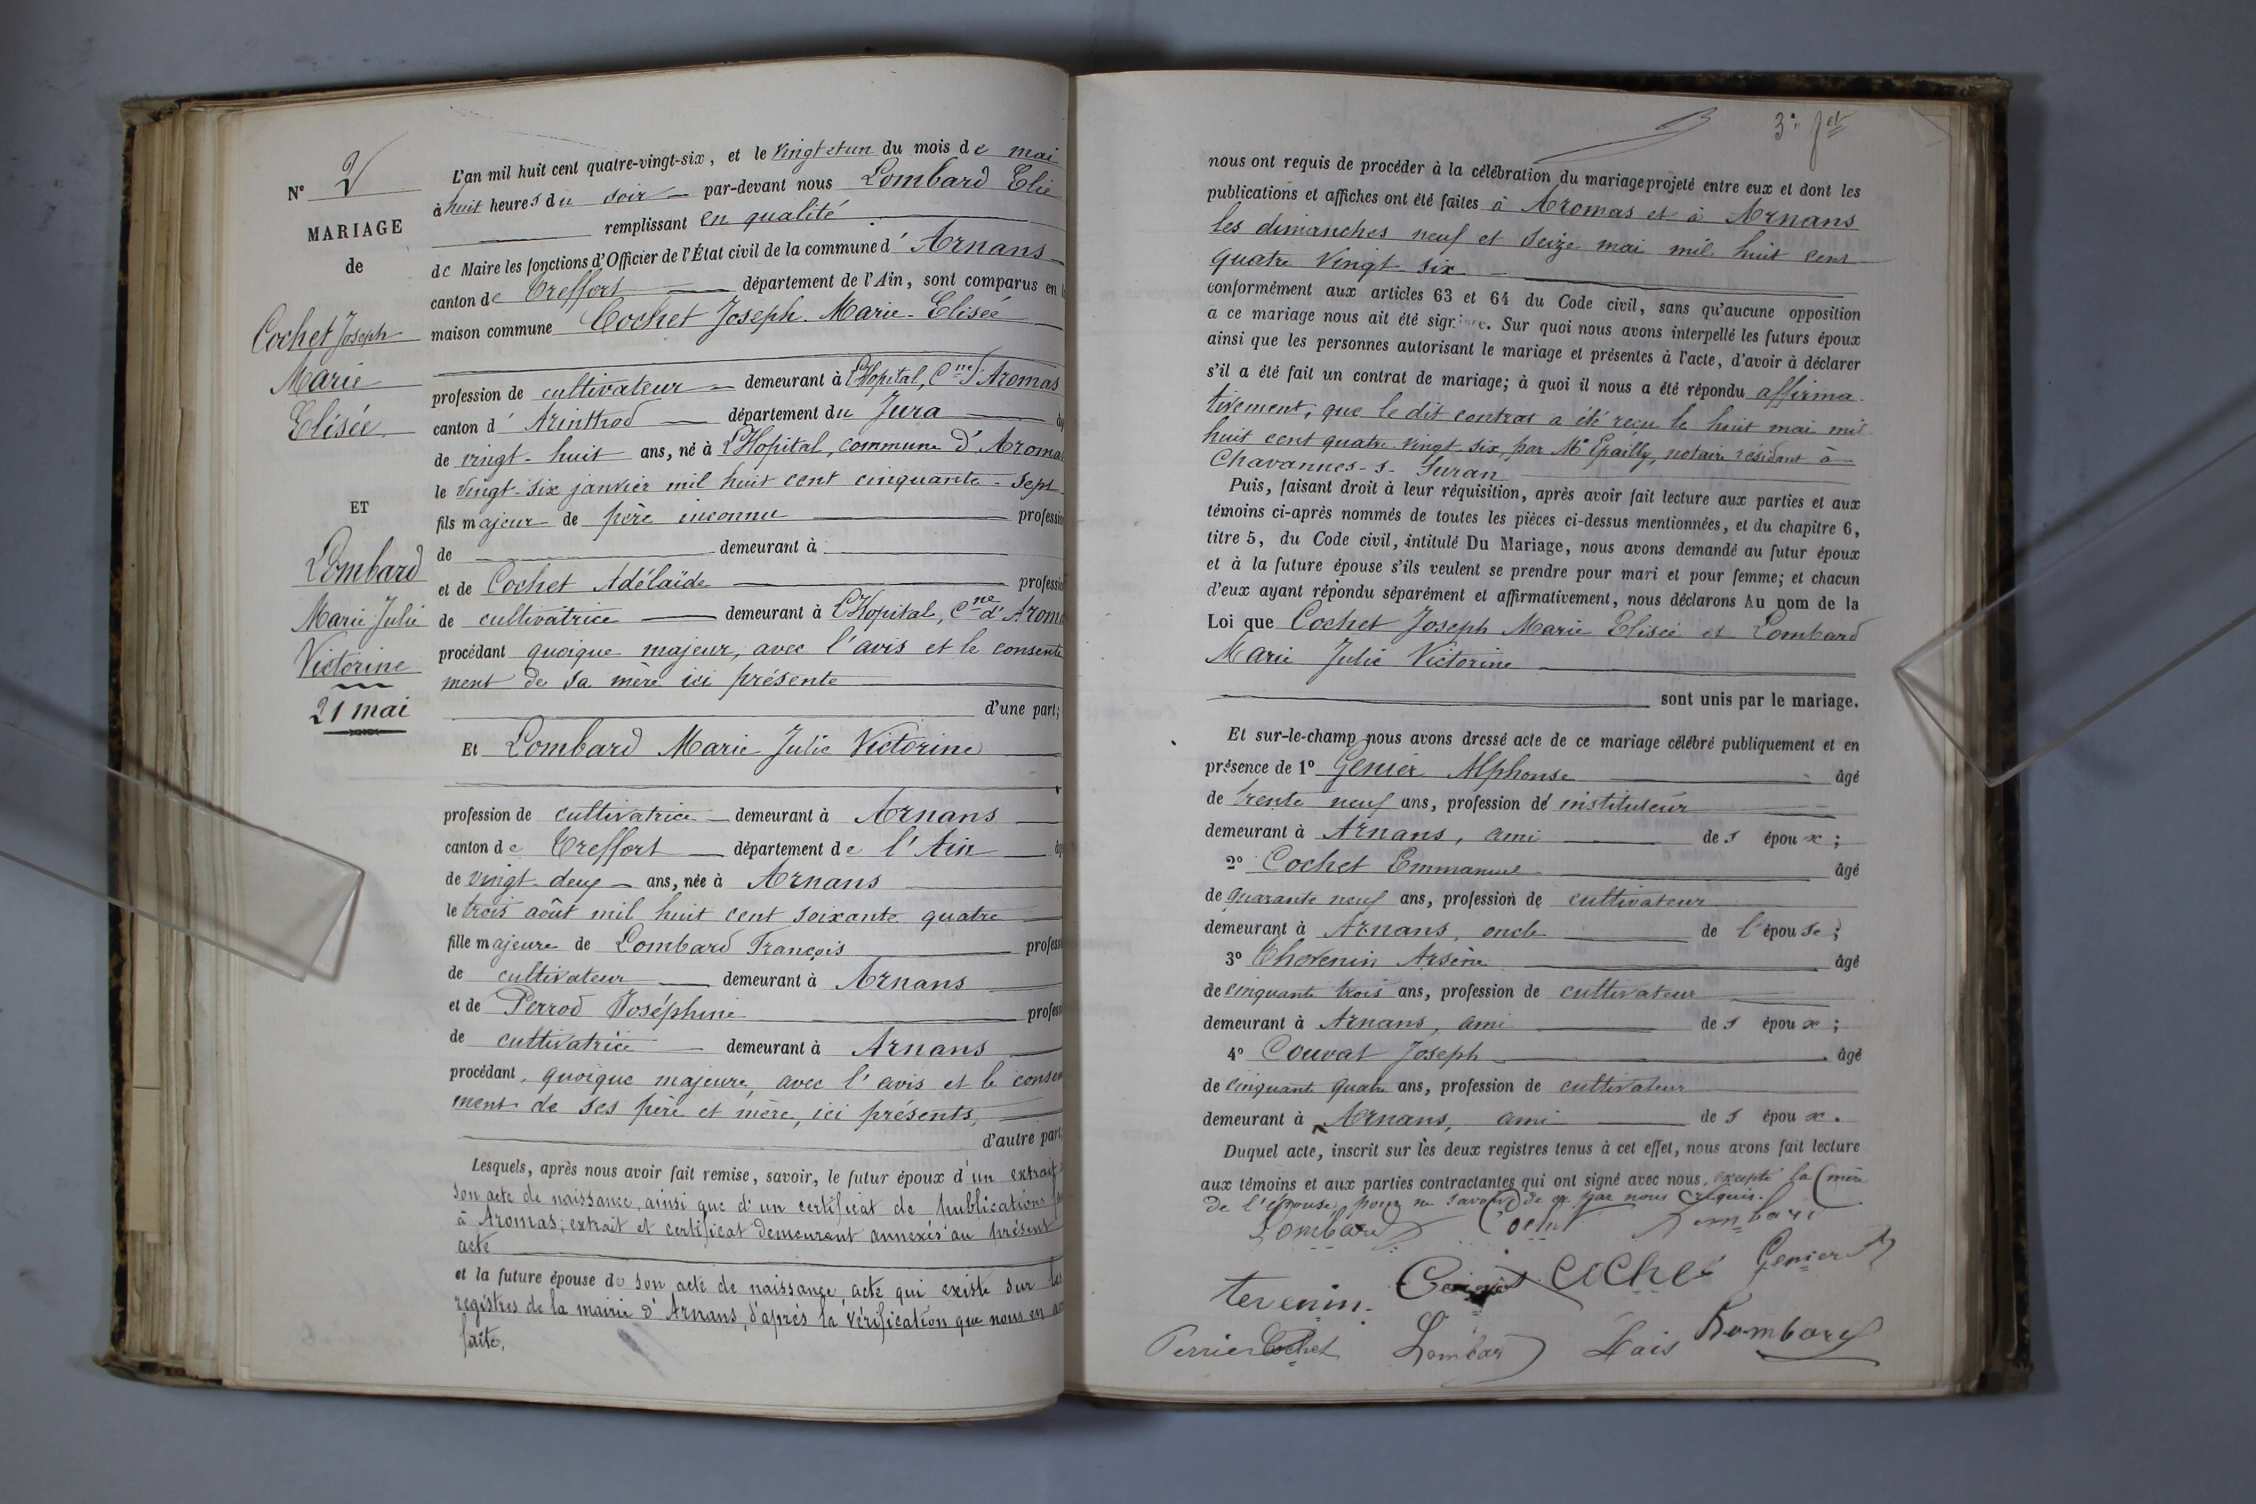 N° 2
MARIAGE
de
Cochet Joseph
Marie
Elisée
ET
Lombard
Marie Julie
Victorine
21 mai
L'an mil huit cent quatre-vingt-six, et le vingt et un du mois de mai
à huit heures du soir par-devant nous Lombard Elie
remplissant en qualité
de Maire les fonctions d'Officier de l'État civil de la commune d'Arnans
canton de Treffort département de l'Ain, sont comparus en
maison commune Cochet Joseph Marie-Elisée
profession de cultivateur demeurant à l'Hopital, Cne d'Aromas
canton d'Arinthod département du Jura
de vingt-huit ans, né à l'Hopital, commune d'Aromas
le vingt-six janvier mil huit cent cinquante-sept
fils majeur de père inconnu profession
de demeurant à
et de Cochet Adélaïde profession
de cultivatrice demeurant à l'Hopital, Cne d'Aroma
procédant quoique majeur, avec l'avis et le consente
ment de sa mère ici présente
d'une part;
Et Lombard Marie Julie Victorine
profession de cultivatrice demeurant à Arnans
canton de Treffort département de l'Ain
de vingt-deux ans, née à Arnans
le trois août mil huit cent soixante quatre
fille majeure de Lombard François profess
de cultivateur demeurant à Arnans
et de Perrod Joséphine profess
de cultivatrice demeurant à Arnans
procédant, quoique majeure, avec l'avis et le consen
ment de ses père et mère, ici présents,
d'autre part
Lesquels, après nous avoir fait remise, savoir, le futur époux d'un extrait
son acte de naissance, ainsi que d'un certificat de publications
à Aromas, extrait et certificat demeurant annexés au présent
acte
et la future épouse de son acte de naissance, acte qui existe sur les
registres de la mairie d'Arnans, d'après la vérification que nous en
faite.
3e fet
nous ont requis de procéder à la célébration du mariage projeté entre eux et dont les
publications et affiches ont été faites à Aromas et à Arnans
les dimanches neuf et seize mai mil huit cent
quatre vingt six
conformément aux articles 63 et 64 du Code civil, sans qu'aucune opposition
a ce mariage nous ait été signifiée. Sur quoi nous avons interpellé les futurs époux
ainsi que les personnes autorisant le mariage et présentes à l'acte, d'avoir à déclarer
s'il a été fait un contrat de mariage; à quoi il nous a été répondu affirma
tivement, que le dit contrat a été reçu le huit mai mil
huit cent quatre vingt six, par Me Epailly, notaire résidant à
Chavannes-s-Suran
Puis, faisant droit à leur réquisition, après avoir fait lecture aux parties et aux
témoins ci-après nommés de toutes les pièces ci-dessus mentionnées, et du chapitre 6,
titre 5, du Code civil, intitulé Du Mariage, nous avons demandé au futur époux
et à la future épouse s'ils veulent se prendre pour mari et pour femme; et chacun
d'eux ayant répondu séparément et affirmativement, nous déclarons Au nom de la
Loi que Cochet Joseph Marie Elisée et Lombard
Marie Julie Victorine
sont unis par le mariage.
Et sur-le-champ nous avons dressé acte de ce mariage célébré publiquement et en
présence de 1° Genier Alphonse âgé
de trente neuf ans, profession d'instituteur
demeurant à Arnans, ami des époux;
2° Cochet Emmanuel âgé
de quarante neuf ans, profession de cultivateur
demeurant à Arnans, oncle de l'épouse;
3° Thévenin Arsène âgé
de cinquante trois ans, profession de cultivateur
demeurant à Arnans, ami des époux;
4° Couvat Joseph âgé
de cinquante quatre ans, profession de cultivateur
demeurant à Arnans, ami des époux.
Duquel acte, inscrit sur les deux registres tenus à cet effet, nous avons fait lecture
aux témoins et aux parties contractantes qui ont signé avec nous, excepté la mère
de l'épouse, pour ne savoir, de ce par nous requis.
Lombard Cochet Lombard
tevenin. Cochet Genier
Perrier Cochet Lombard Lombard